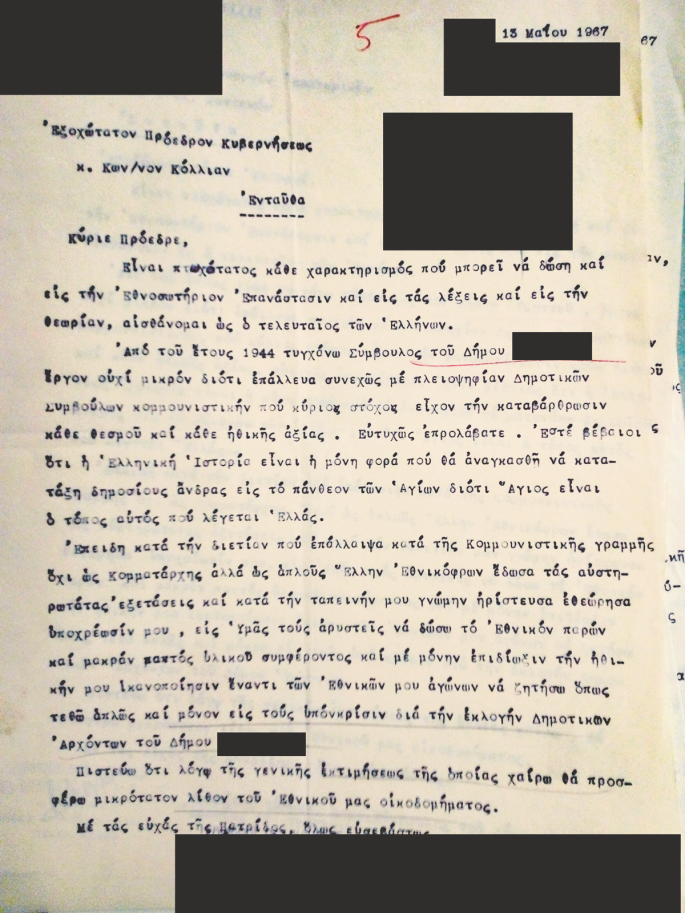 5
13 Μαΐου 1967
67
Ἐξοχώτατον Πρόεδρον Κυβερνήσεως
κ. Κων/νον Κόλλιαν
Ἐνταῦθα
Κύριε Πρόεδρε,
Εἶναι πτωχότατος κάθε χαρακτηρισμός πού μπορεῖ νά δώση καί
εἰς τήν Ἐθνοσωτήριον Ἐπανάστασιν καί εἰς τάς λέξεις καί εἰς τήν
θεωρίαν, αἰσθάνομαι ὡς ὁ τελευταῖος τῶν Ἑλλήνων.
Ἀπό τοῦ ἔτους 1944 τυγχάνω Σύμβουλος τοῦ Δήμου
ἔργον οὐχί μικρόν διότι ἐπάλλευα συνεχῶς μέ πλειοψηφίαν Δημοτικῶν
Συμβούλων κομμουνιστικήν πού κύριος στόχος εἶχον τήν καταβάρθρωσιν
κάθε θεσμοῦ καί κάθε ἠθικῆς ἀξίας . Εὐτυχῶς ἐπρολάβατε . Ἐστέ βέβαιοι
ὅτι ἡ Ἑλληνική Ἱστορία εἶναι ἡ μόνη φορά πού θά ἀναγκασθῆ νά κατα-
τάξη δημοσίους ἄνδρας εἰς τό πάνθεον τῶν Ἁγίων διότι Ἅγιος εἶναι
ὁ τόπος αὐτός πού λέγεται Ἑλλάς.
Ἐπειδη κατά τήν διετίαν πού ἐπάλλαιψα κατά τῆς Κομμουνιστικῆς γραμμῆς
ὄχι ὡς Κομματάρχης ἀλλά ὡς ἁπλοῦς Ἕλλην Ἐθνικόφρων ἔδωσα τάς αὐστη-
ρωτάτας ἐξετάσεις καί κατά τήν ταπεινήν μου γνώμην ἠρίστευσα ἐθεώρησα
ὑποχρέωσίν μου , εἰς Ὑμᾶς τούς ἀρυστεῖς νά δώσω τό Ἐθνικόν παρών
καί μακράν παντός ὑλικοῦ συμφέροντος καί μέ μόνην ἐπιδίωξιν τήν ἠθι-
κήν μου ἱκανοποίησιν ἔναντι τῶν Ἐθνικῶν μου ἀγώνων νά ζητήσω ὅπως
τεθῶ ἁπλῶς καί μόνον εἰς τούς ὑπόνκρίσιν διά τήν ἐκλογήν Δημοτικῶν
Ἀρχόντων τοῦ Δήμου
Πιστεύω ὅτι λόγῳ τῆς γενικῆς ἐκτιμήσεως τῆς ὁποίας χαίρω θά προσ-
φέρω μικρότατον λίθον τοῦ Ἐθνικοῦ μας οἰκοδομήματος.
Μέ τάς εὐχάς τῆς Πατρίδος, ὅλως εὐσεβάστως